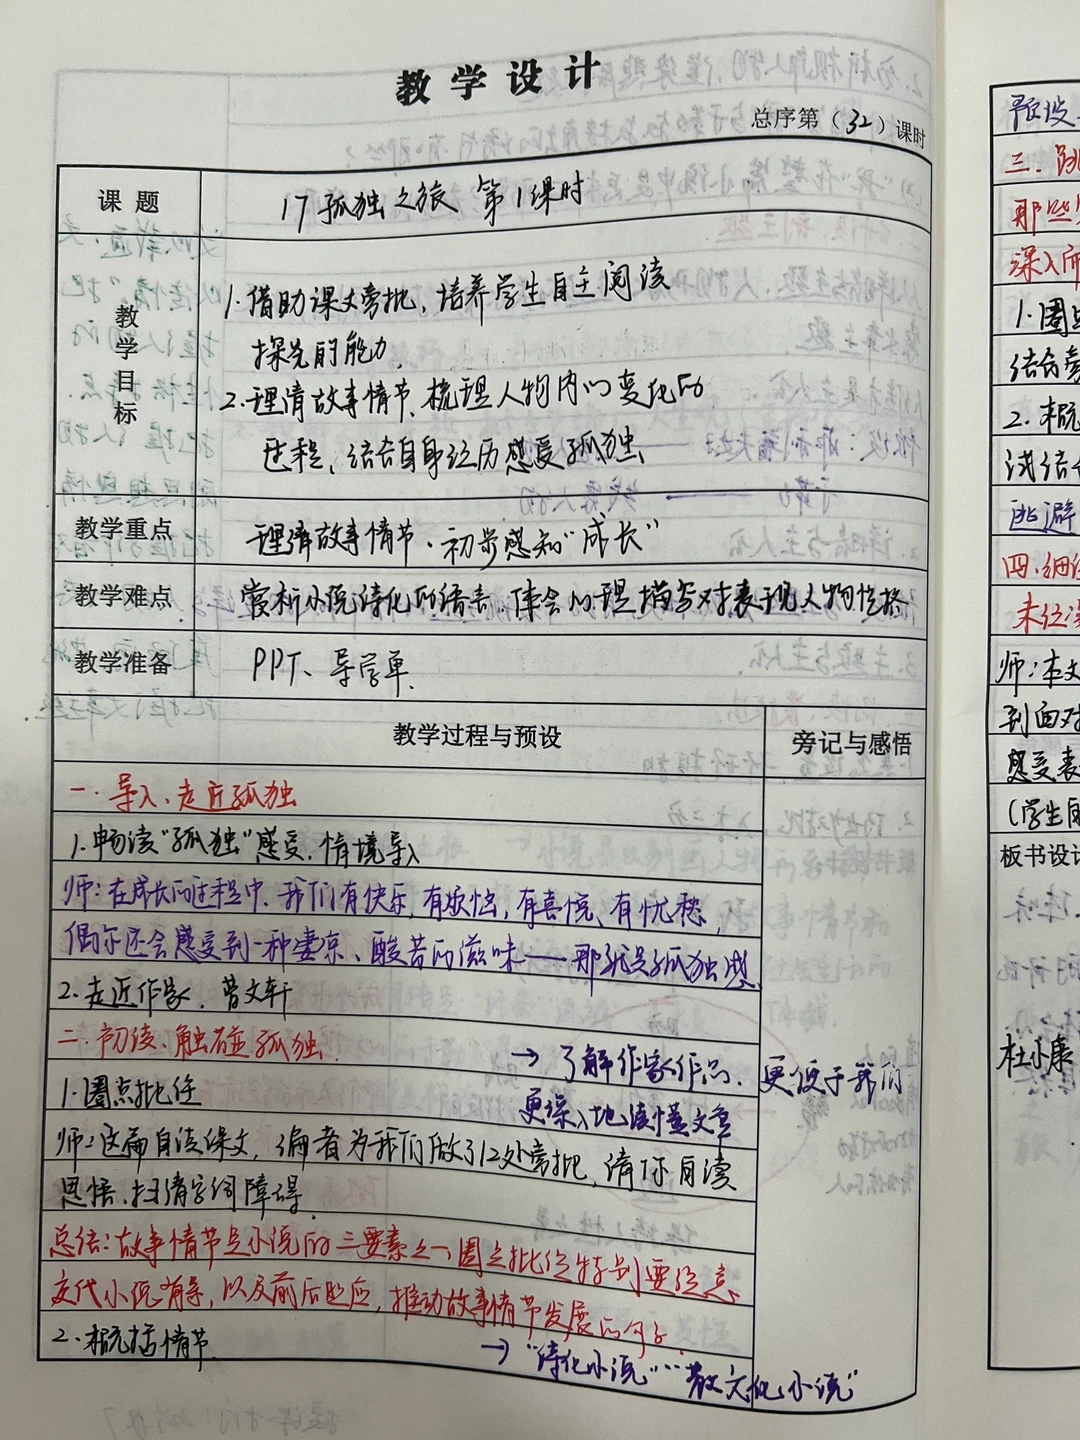 教学设计
总序第（32）课时
课题
17孤独之旅 第1课时
教学目标
1.借助课文旁批，培养学生自主阅读
探究的能力.
2.理清故事情节、梳理人物内心变化的
过程，结合自身经历感受孤独
教学重点
理清故事情节.初步感知"成长"
教学难点
赏析小说诗化的语言.体会心理描写对表现人物性格
教学准备
PPT、导学单.
教学过程与预设
旁记与感悟
一.导入、走近孤独
1.畅谈"孤独"感受.情境导入
师：在成长的过程中，我们有快乐，有烦恼，有喜悦、有忧愁，
偶尔还会感受到一种凄凉、酸苦的滋味——那就是孤独感.
2.走近作家.曹文轩
二.初读、触碰孤独.
→了解作家作品.更便于我们
1.圈点批注
更深入地读懂文章
师：这篇自读课文，编者为我们做了12处旁批，请你自读
思悟、扫清字词障碍.
总结：故事情节是小说的三要素之一，圈点批注特别要注意
交代小说背景，以及前后照应，推动故事情节发展的句子.
2.概括情节.
→"诗化小说""散文化小说"
三.跳
那些
深入
1.圈
结合旁
2.概
试结合
逃避
四.细
未经
师：本文
到面对
感受
(学生
板书设计
杜小康